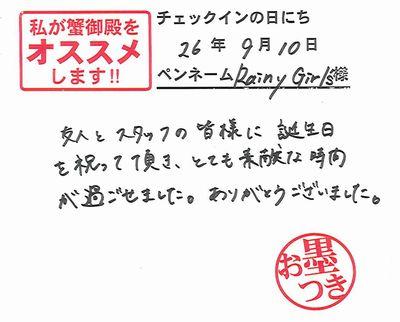 私が蟹御殿を
オススメ
します!!
チェックインの日にち
26年9月10日
ペンネームRainy Girls様
友人とスタッフの皆様に誕生日
を祝って頂き、とても素敵な時間
が過ごせました。ありがとうございました。
お墨つき